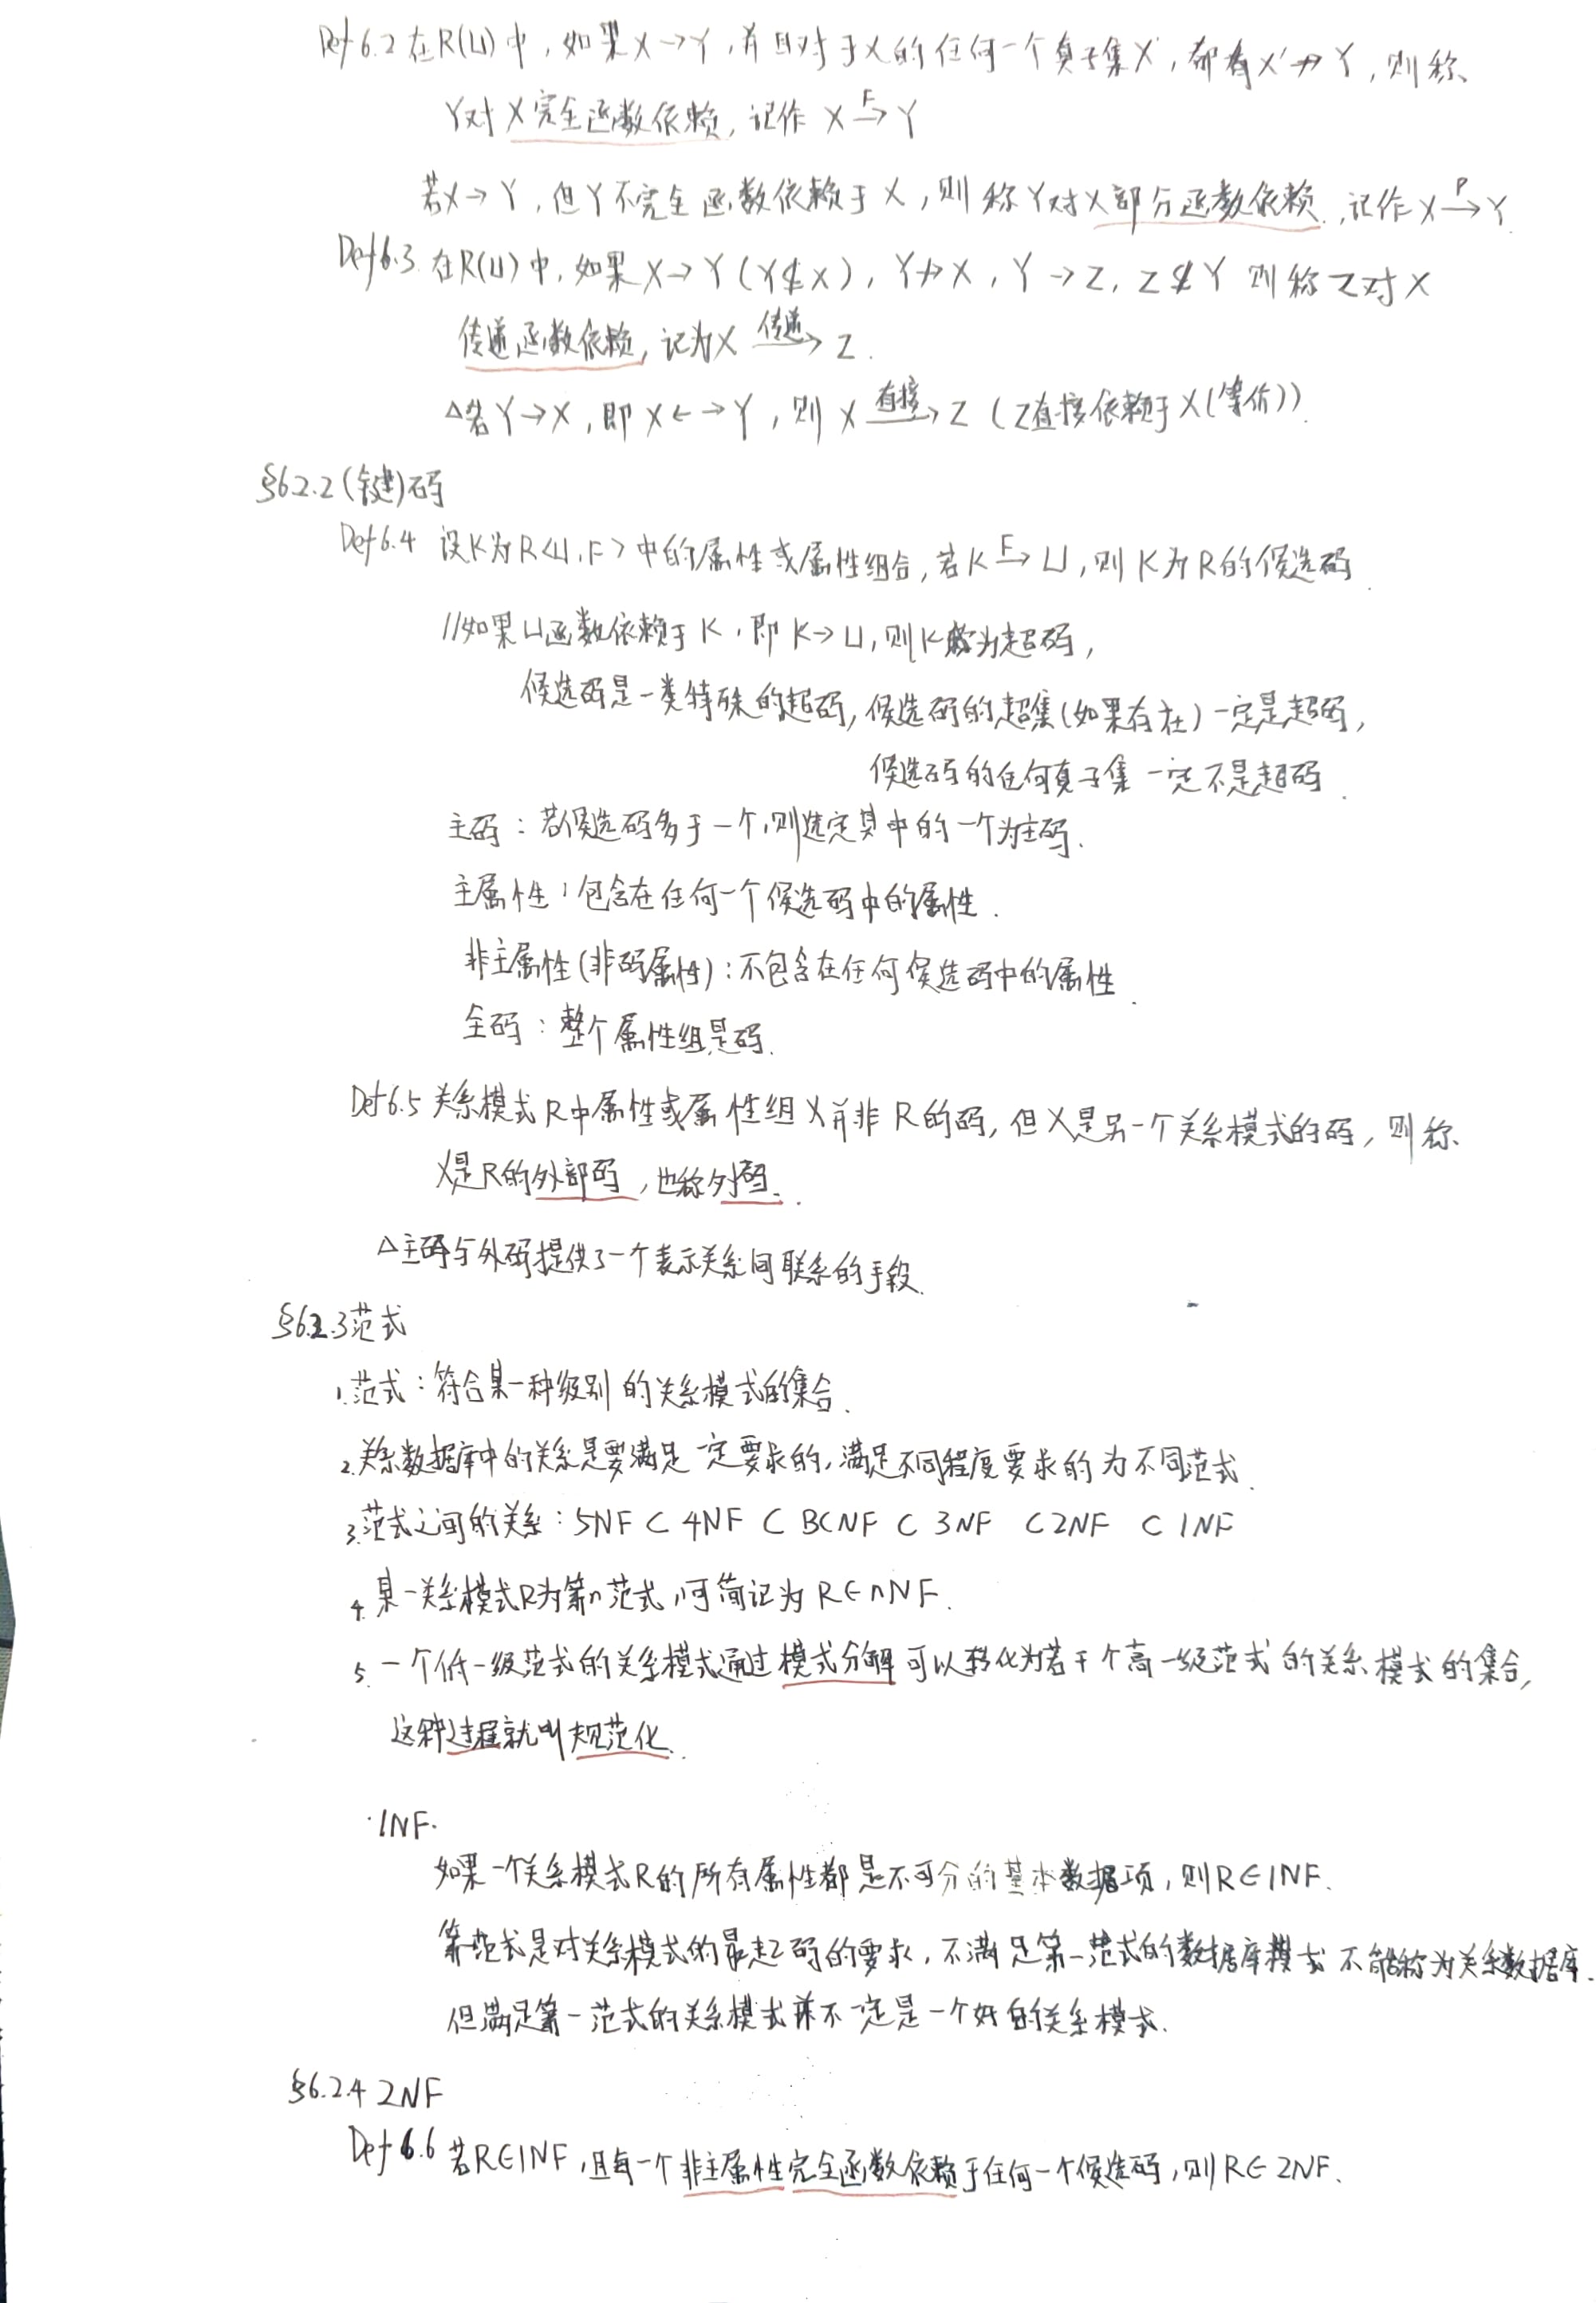 Def 6.2 在R(U)中,如果X→Y,并且对于X的任何一个真子集X′,都有X′↛Y,则称
Y对X完全函数依赖,记作 X F→ Y
若X→Y,但Y不完全函数依赖于X,则称Y对X部分函数依赖,记作X P→ Y
Def 6.3 在R(U)中,如果X→Y(Y⊈X),Y↛X,Y→Z,Z⊈Y 则称Z对X
传递函数依赖,记为X 传递→ Z.
△若Y→X,即X←→Y,则 X 直接→ Z (Z直接依赖于X(等价)).
§6.2.2(键)码
Def 6.4 设K为R<U,F>中的属性或属性组合,若K F→ U,则K为R的候选码.
//如果U函数依赖于K,即K→U,则K称为超码,
候选码是一类特殊的超码,候选码的超集(如果存在)一定是超码,
候选码的任何真子集一定不是超码.
主码:若候选码多于一个,则选定其中的一个为主码.
主属性:包含在任何一个候选码中的属性.
非主属性(非码属性):不包含在任何候选码中的属性.
全码:整个属性组是码.
Def 6.5 关系模式R中属性或属性组X并非R的码,但X是另一个关系模式的码,则称
X是R的外部码,也称外码.
△主码与外码提供了一个表示关系间联系的手段.
§6.2.3范式
1.范式:符合某一种级别的关系模式的集合.
2.关系数据库中的关系是要满足一定要求的,满足不同程度要求的为不同范式.
3.范式之间的关系:5NF ⊂ 4NF ⊂ BCNF ⊂ 3NF ⊂ 2NF ⊂ 1NF
4.某一关系模式R为第n范式,可简记为R∈nNF.
5.一个低一级范式的关系模式通过模式分解可以转化为若干个高一级范式的关系模式的集合,
这种过程就叫规范化.
·1NF.
如果一个关系模式R的所有属性都是不可分的基本数据项,则R∈1NF.
第一范式是对关系模式的最起码的要求,不满足第一范式的数据库模式不能称为关系数据库.
但满足第一范式的关系模式并不一定是一个好的关系模式.
§6.2.4 2NF
Def 6.6 若R∈1NF,且每一个非主属性完全函数依赖于任何一个候选码,则R∈2NF.